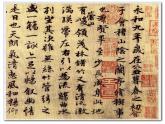 永和九年歲在癸丑暮春之初會
于會稽山陰之蘭亭脩稧事
也群賢畢至少長咸集此地
有崇山峻領茂林脩竹又有清流激
湍暎帶左右引以為流觴曲水
列坐其次雖無絲竹管弦之
盛一觴一詠亦足以暢敘幽情
是日也天朗氣清惠風和暢仰